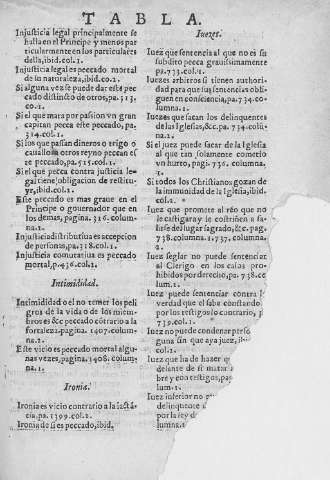 TABLA.
Injusticia legal principalmente se
halla en el Principe y menos par
ticularmente en los particulares
della, ibid.col.1.
Injusticia legal es peccado mortal
de su naturaleza, ibid.co.1.
Si alguna vez se puede dar este pec
cado distincto de otros, pa.313.
co.1.
Si el que mara por passion vn gran
capitan pecca este peccado, pa.
314.col.1.
Si los que passan dineros o trigo o
cauallos a otros reyno peccan el
te peccado, pa.315.col.1.
Si el que pecca contra justicia le-
gal tiene obligacion de restitu-
yr, ibid.col.1.
Este peccado es mas graue en el
Principe o gouernador que en
los demas, pagina.316.colum-
na.1.
Injusticia distributiua es accepcion
de personas, pa.318.col.1.
Injusticia comutatiua es peccado
mortal, p.436.col.1.
Intimididad.
Intimididad o el no temer los peli
gros de la vida o de los miem-
bros es & peccado cõtrario a la
fortaleza. pagin.1407.colum-
na.2.
Este vicio es peccado mortal algu-
nas vezes, pagina.1408.colum-
na.1.
Ironia.
Ironia es vicio contrario a la jactã-
cia, pa.1399.col.1.
Ironia de si es peccado, ibid.
Iuezes.
Iuez que sentencia al que no es su
subdito pecca grauissimamente
pa.733.col.1.
Iuezes arbitros si tienen authori-
dad para que sus sentencias obli
guen en consciencia, pa.734.co-
lumna.1.
Iuezes que sacan los delinquentes
de las Iglesias, &c. pa.734.colu-
na.2.
Si el juez puede sacar de la Iglesia
al que tan solamente cometio
vn hurto, pagi. 736. columna.
1.
Si todos los Christianos gozan de
la immunidad de la Iglesia, ibid.
col.2.
Iuez que promete al reo que no
le castigara y le costriñen a sa-
lirse del lugar sagrado, &c. pag.
738.columna.1.737.columna.
2.
Iuez seglar no puede sentenciar
al Clerigo en los casos prohi-
bidos por derecho, pa.738.co
lum.1.
Iuez puede sentenciar contra l
verdad que el sabe constando
por los testigos lo contrario, 
739.col.1.
Iuez no puede condenar perso
guna sin que aya juez, ib
col.1.
Iuez que ha de hazer q
delante de si matar a
bre y con testigos, pa
lum.1.
Iuez inferior no pu
delinquente
por la rey d
mna.1.